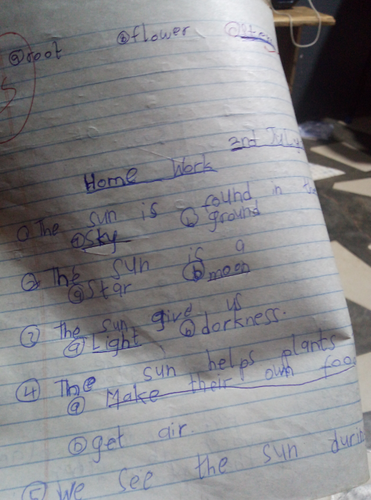 ⓐ root ⓑ flower ⓒ stem
2nd July
Home Work
① The sun is found in the
ⓐ sky ⓑ ground
② The sun is a
ⓐ Star ⓑ moon
③ The sun give us
ⓐ Light ⓑ darkness.
④ The sun helps plants
ⓐ Make their own foo
ⓑ get air
⑤ We see the sun durin